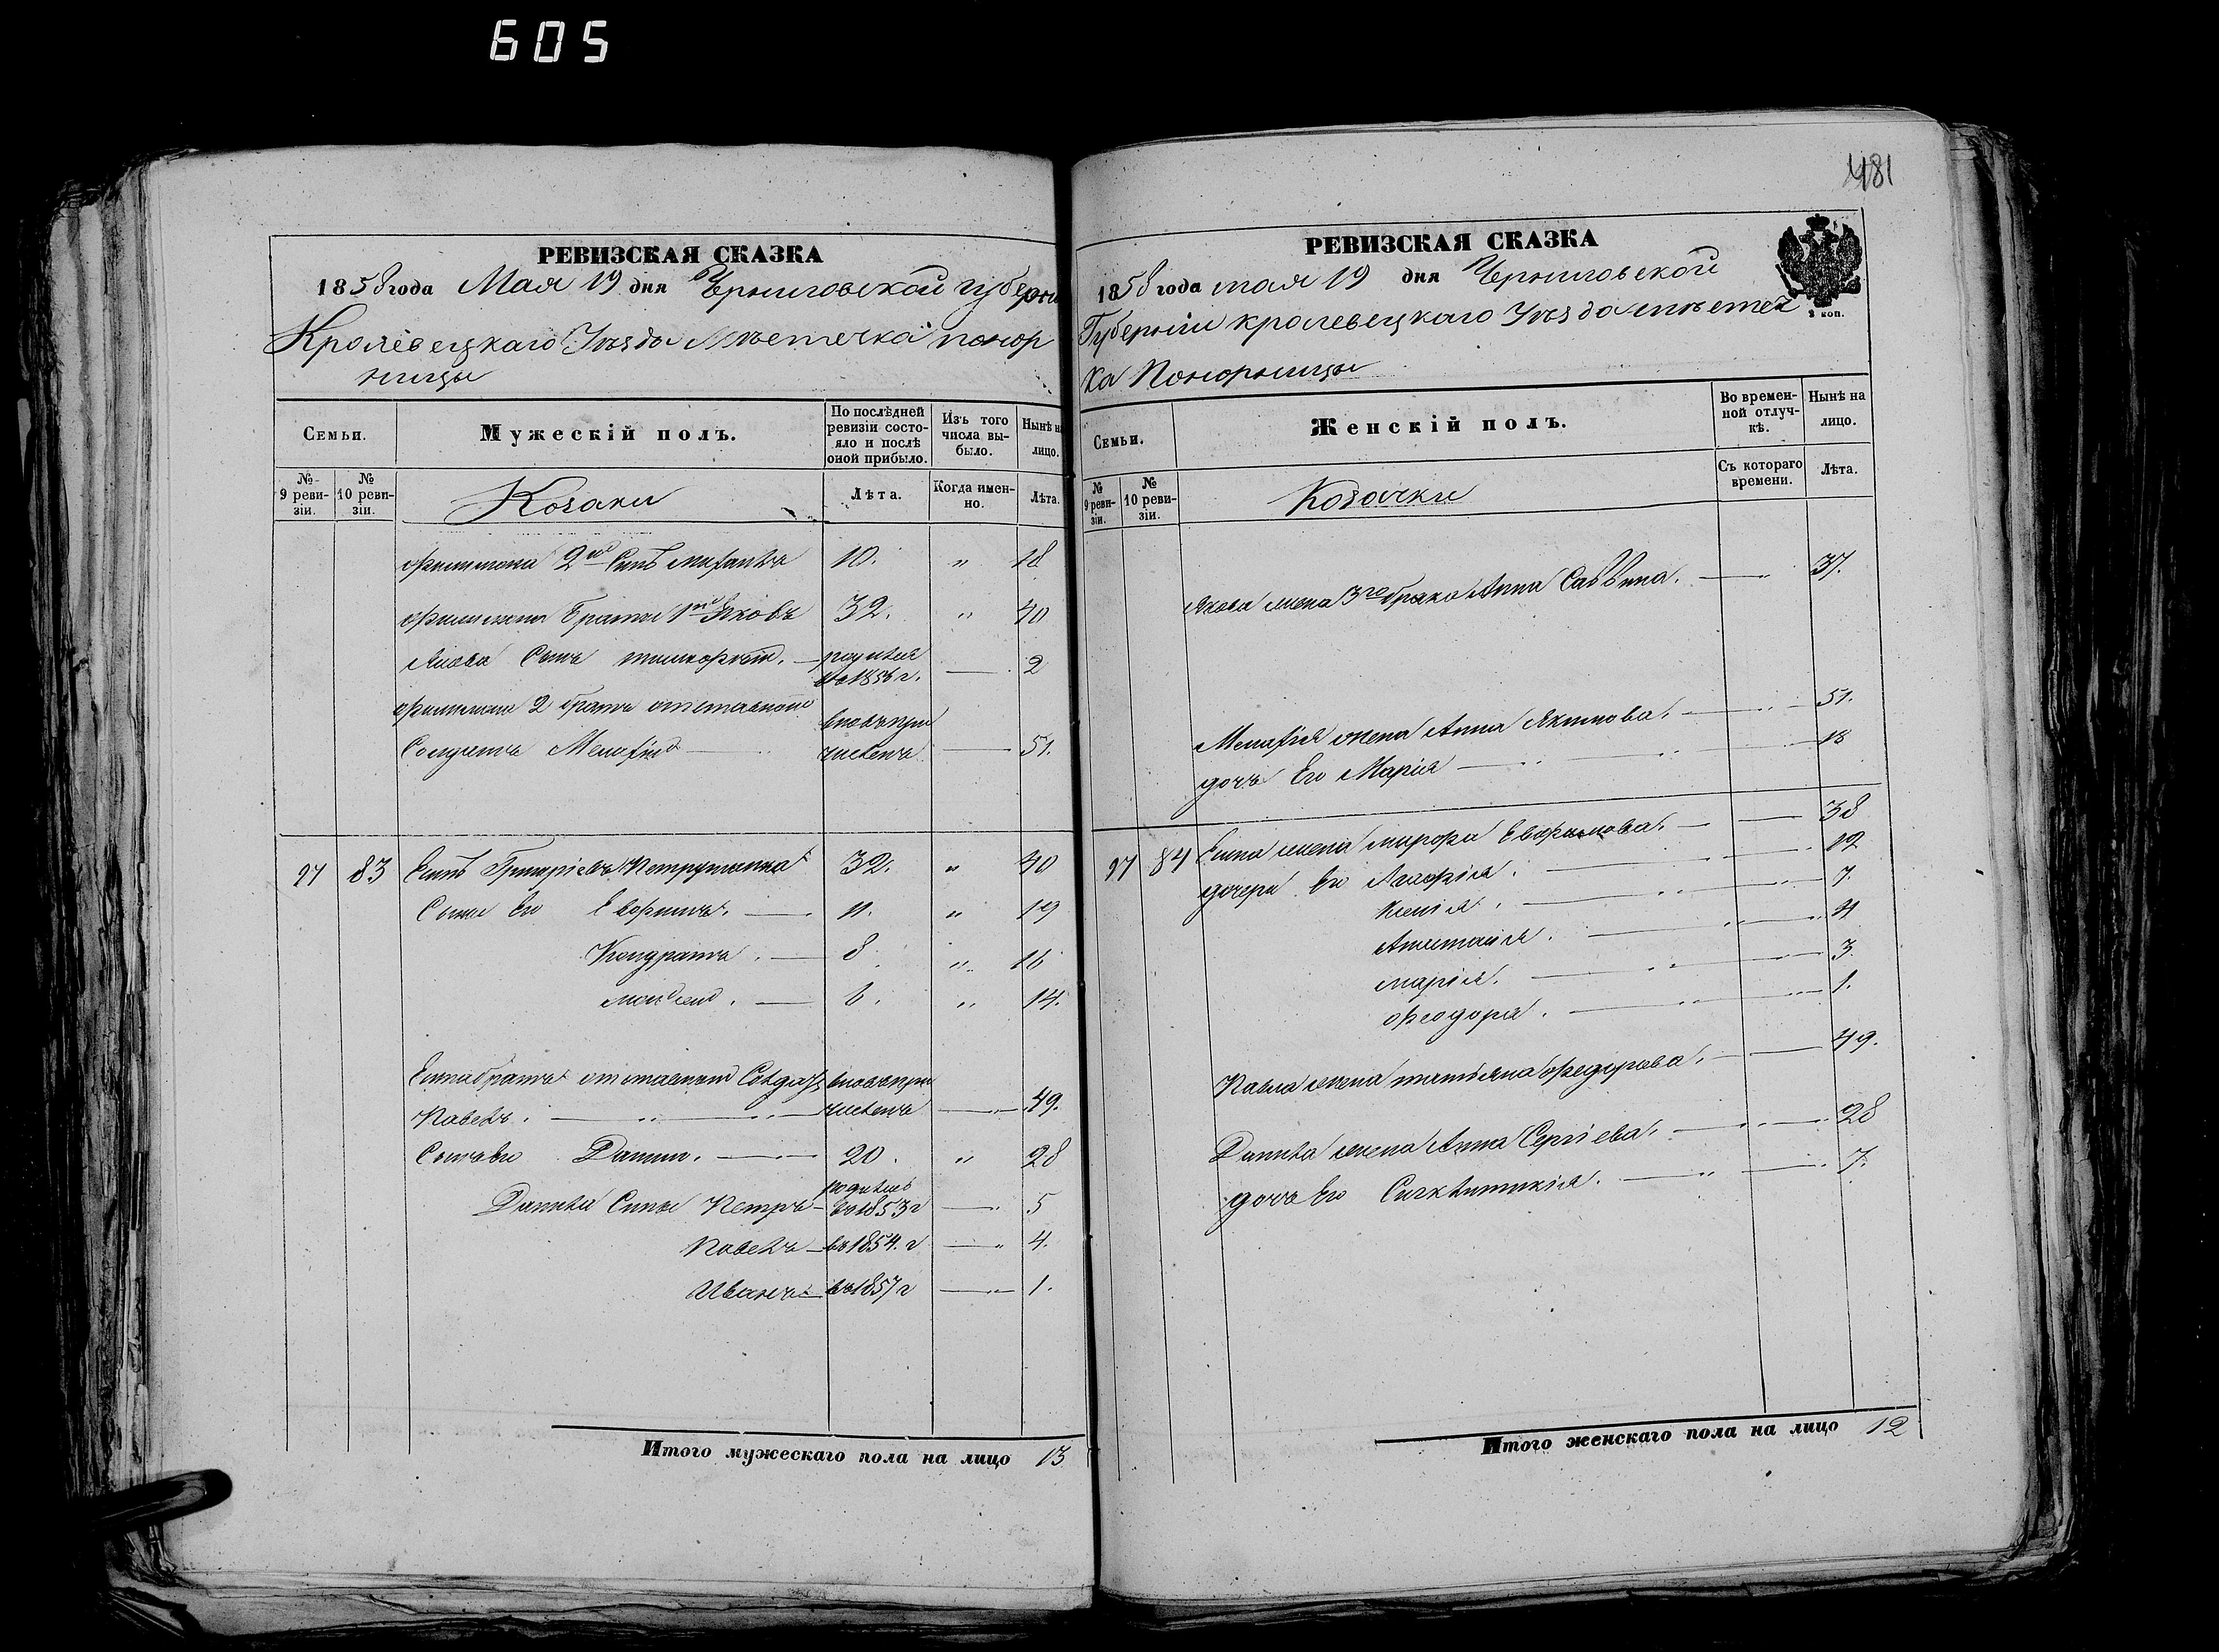 605
481
РЕВИЗСКАЯ СКАЗКА
1858 года Мая 19 дня Черниговской губерни
Кролевецкаго Уѣзда Мѣстечка понор
ницы
Семьи.
Мужескій полъ.
По послѣдней ревизіи состояло и послѣ оной прибыло.
Изъ того числа выбыло.
Нынѣ на лицо.
№ 9 ревизіи.
№ 10 ревизіи.
Козаки
Лѣта.
Когда именно.
Лѣта.
Филимона 2й Сынъ 10. " 18
Филимона Братья 1й Яковъ 32. " 40
Якова Сынъ родился
въ 1856 г. 2
Филимона 2 братъ отставной
вновь при
Солдатъ численъ 51.
27 83 Григоріевъ Петрушенко 32. " 40
Сыны Его Евфимъ. 11. " 19
Кондратъ. 8 " 16
6. " 14.
братъ отставной Солдатъ вновь при
Павелъ. численъ 49.
Сынъ его Данило. 20. " 28
родился
Данила Сыны Петръ въ 1853 г 5
Павелъ въ 1854. г 4.
Иванъ въ 1857 г 1.
Итого мужескаго пола на лицо 13
РЕВИЗСКАЯ СКАЗКА
1858 года мая 19 дня Черниговской
Губерніи кролевецкаго Уѣзда мѣстеч
2 коп.
ка Понорницы
Семьи.
Женскій полъ.
Во временной отлучкѣ.
Нынѣ на лицо.
№ 9 ревизіи.
№ 10 ревизіи.
Козачки
Съ котораго времени.
Лѣта.
Якова жена 3го брака Анна Саввина. 37.
жена Анна Якимова. 51.
дочь Его Марія 18
27 84 жена Евфимова. 38
дочери Его 12
Ксенія. 7.
Анастасія. 4
марія. 3.
Феодора. 1.
Павла жена татіяна Федорова. 49.
Данила жена Анна Сергіева. 28
дочь Его 7.
Итого женскаго пола на лицо 12